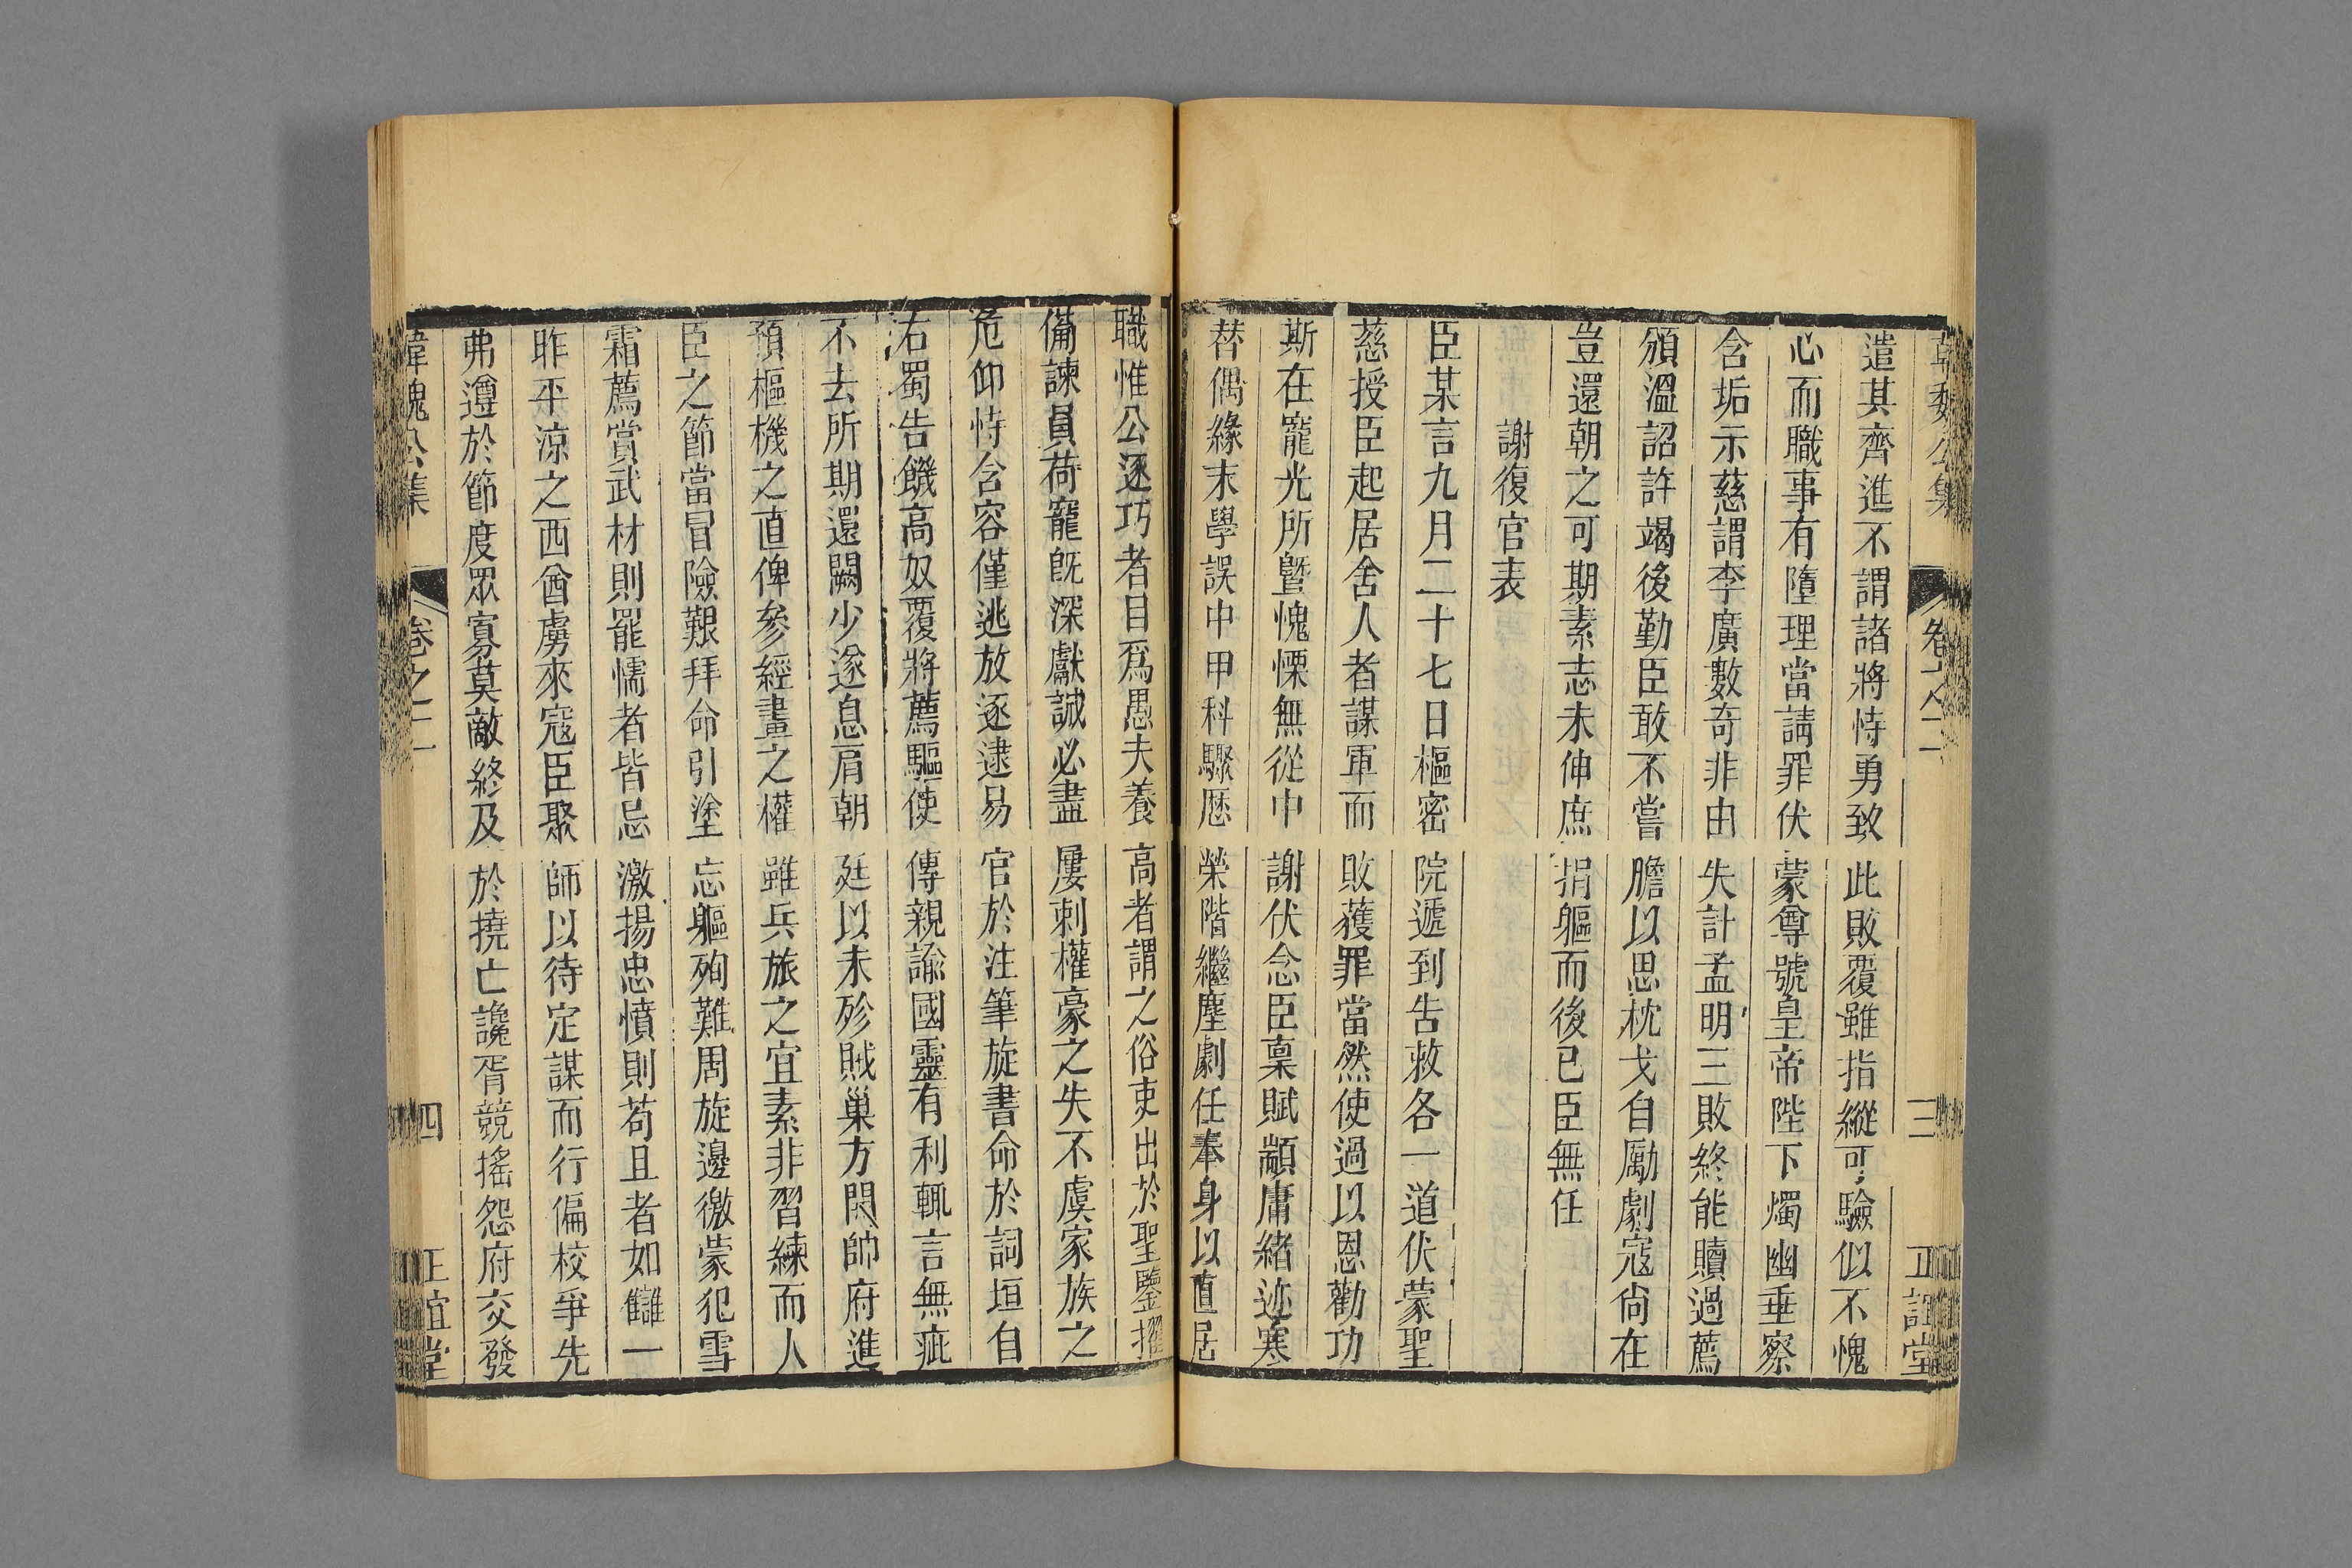 韓魏公集 卷之二 三 正誼堂
遣其齊進不謂諸將恃勇致此敗覆雖指縱可驗似不愧
心而職事有隳理當請罪伏蒙尊號皇帝陛下燭幽垂察
含垢示慈謂李廣數奇非由失計孟明三敗終能贖過薦
頒溫詔許竭後勤臣敢不嘗膽以思枕戈自勵劇寇尙在
豈還朝之可期素志未伸庶捐軀而後已臣無任
謝復官表
臣某言九月二十七日樞密院遞到告敕各一道伏蒙聖
慈授臣起居舍人者謀軍而敗獲罪當然使過以恩勸功
斯在寵光所曁愧慄無從中謝伏念臣稟賦顓庸緒迹寒
替偶緣末學誤中甲科驟歷榮階繼塵劇任奉身以直居
職惟公逐巧者目爲愚夫養高者謂之俗吏出於聖鑒擢
備諫員荷寵旣深獻誠必盡屢刺權豪之失不虞家族之
危仰恃含容僅逃放逐逮易官於注筆旋書命於詞垣自
右蜀告饑高奴覆將薦驅使傳親諭國靈有利輒言無疵
不去所期還闕少遂息肩朝廷以未殄賊巢方閱帥府進
預樞機之直俾參經畫之權雖兵旅之宜素非習練而人
臣之節當冒險艱拜命引塗忘軀殉難周旋邊徼蒙犯雪
霜薦賞武材則罷懦者皆忌激揚忠憤則苟且者如讎一
昨平涼之西酋虜來寇臣聚師以待定謀而行偏校爭先
弗遵於節度眾寡莫敵終及於撓亡讒胥競搖怨府交發
韓魏公集 卷之二 四 正誼堂